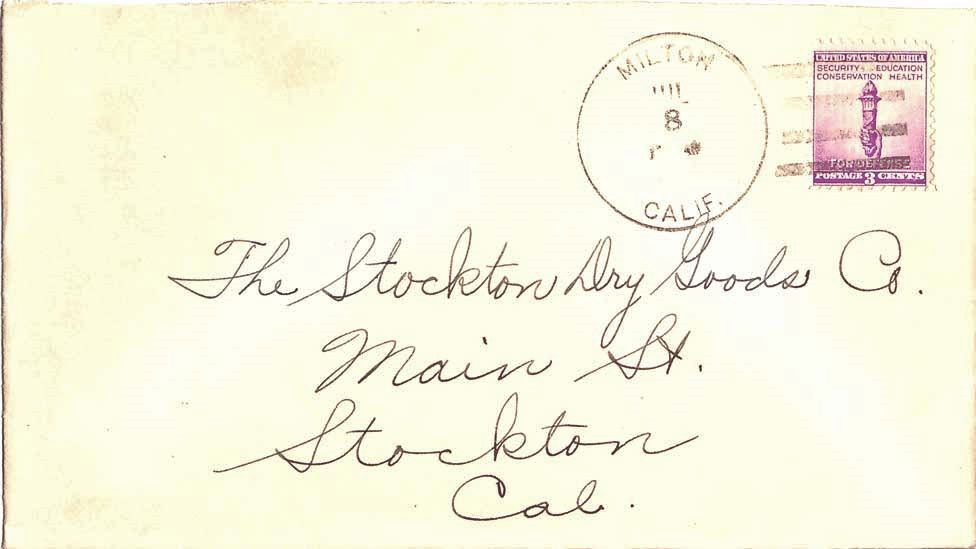 MILTON
8
CALIF.
UNITED STATES OF AMERICA
SECURITY EDUCATION
CONSERVATION HEALTH
FOR DEFENSE
POSTAGE 3 CENTS
The Stockton Dry Goods Co.
Main St.
Stockton
Cal.